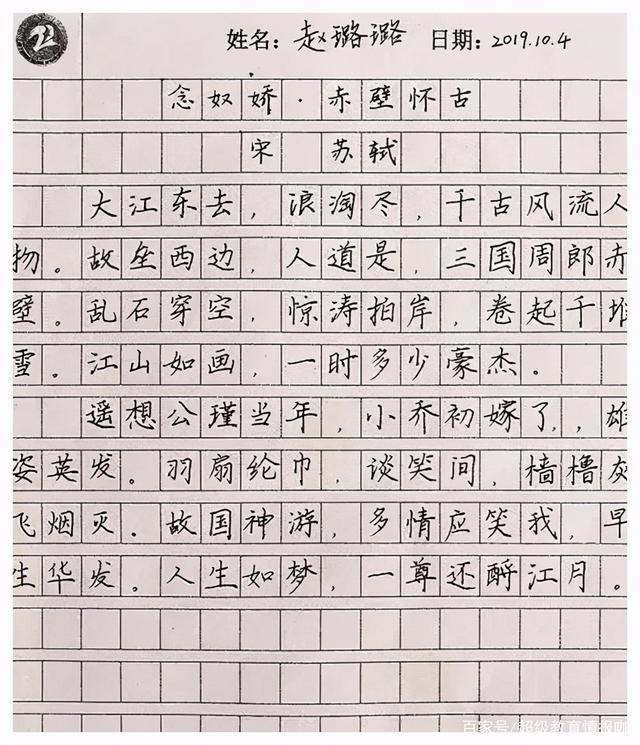 姓名: 赵璐璐 日期: 2019.10.4
念奴娇·赤壁怀古
宋 苏轼
大江东去,浪淘尽,千古风流人
物。故垒西边,人道是,三国周郎赤
壁。乱石穿空,惊涛拍岸,卷起千堆
雪。江山如画,一时多少豪杰。
遥想公瑾当年,小乔初嫁了,,雄
姿英发。羽扇纶巾,谈笑间,樯橹灰
飞烟灭.故国神游,多情应笑我,早
生华发。人生如梦,一尊还酹江月。
百家号/超级教育情报咖